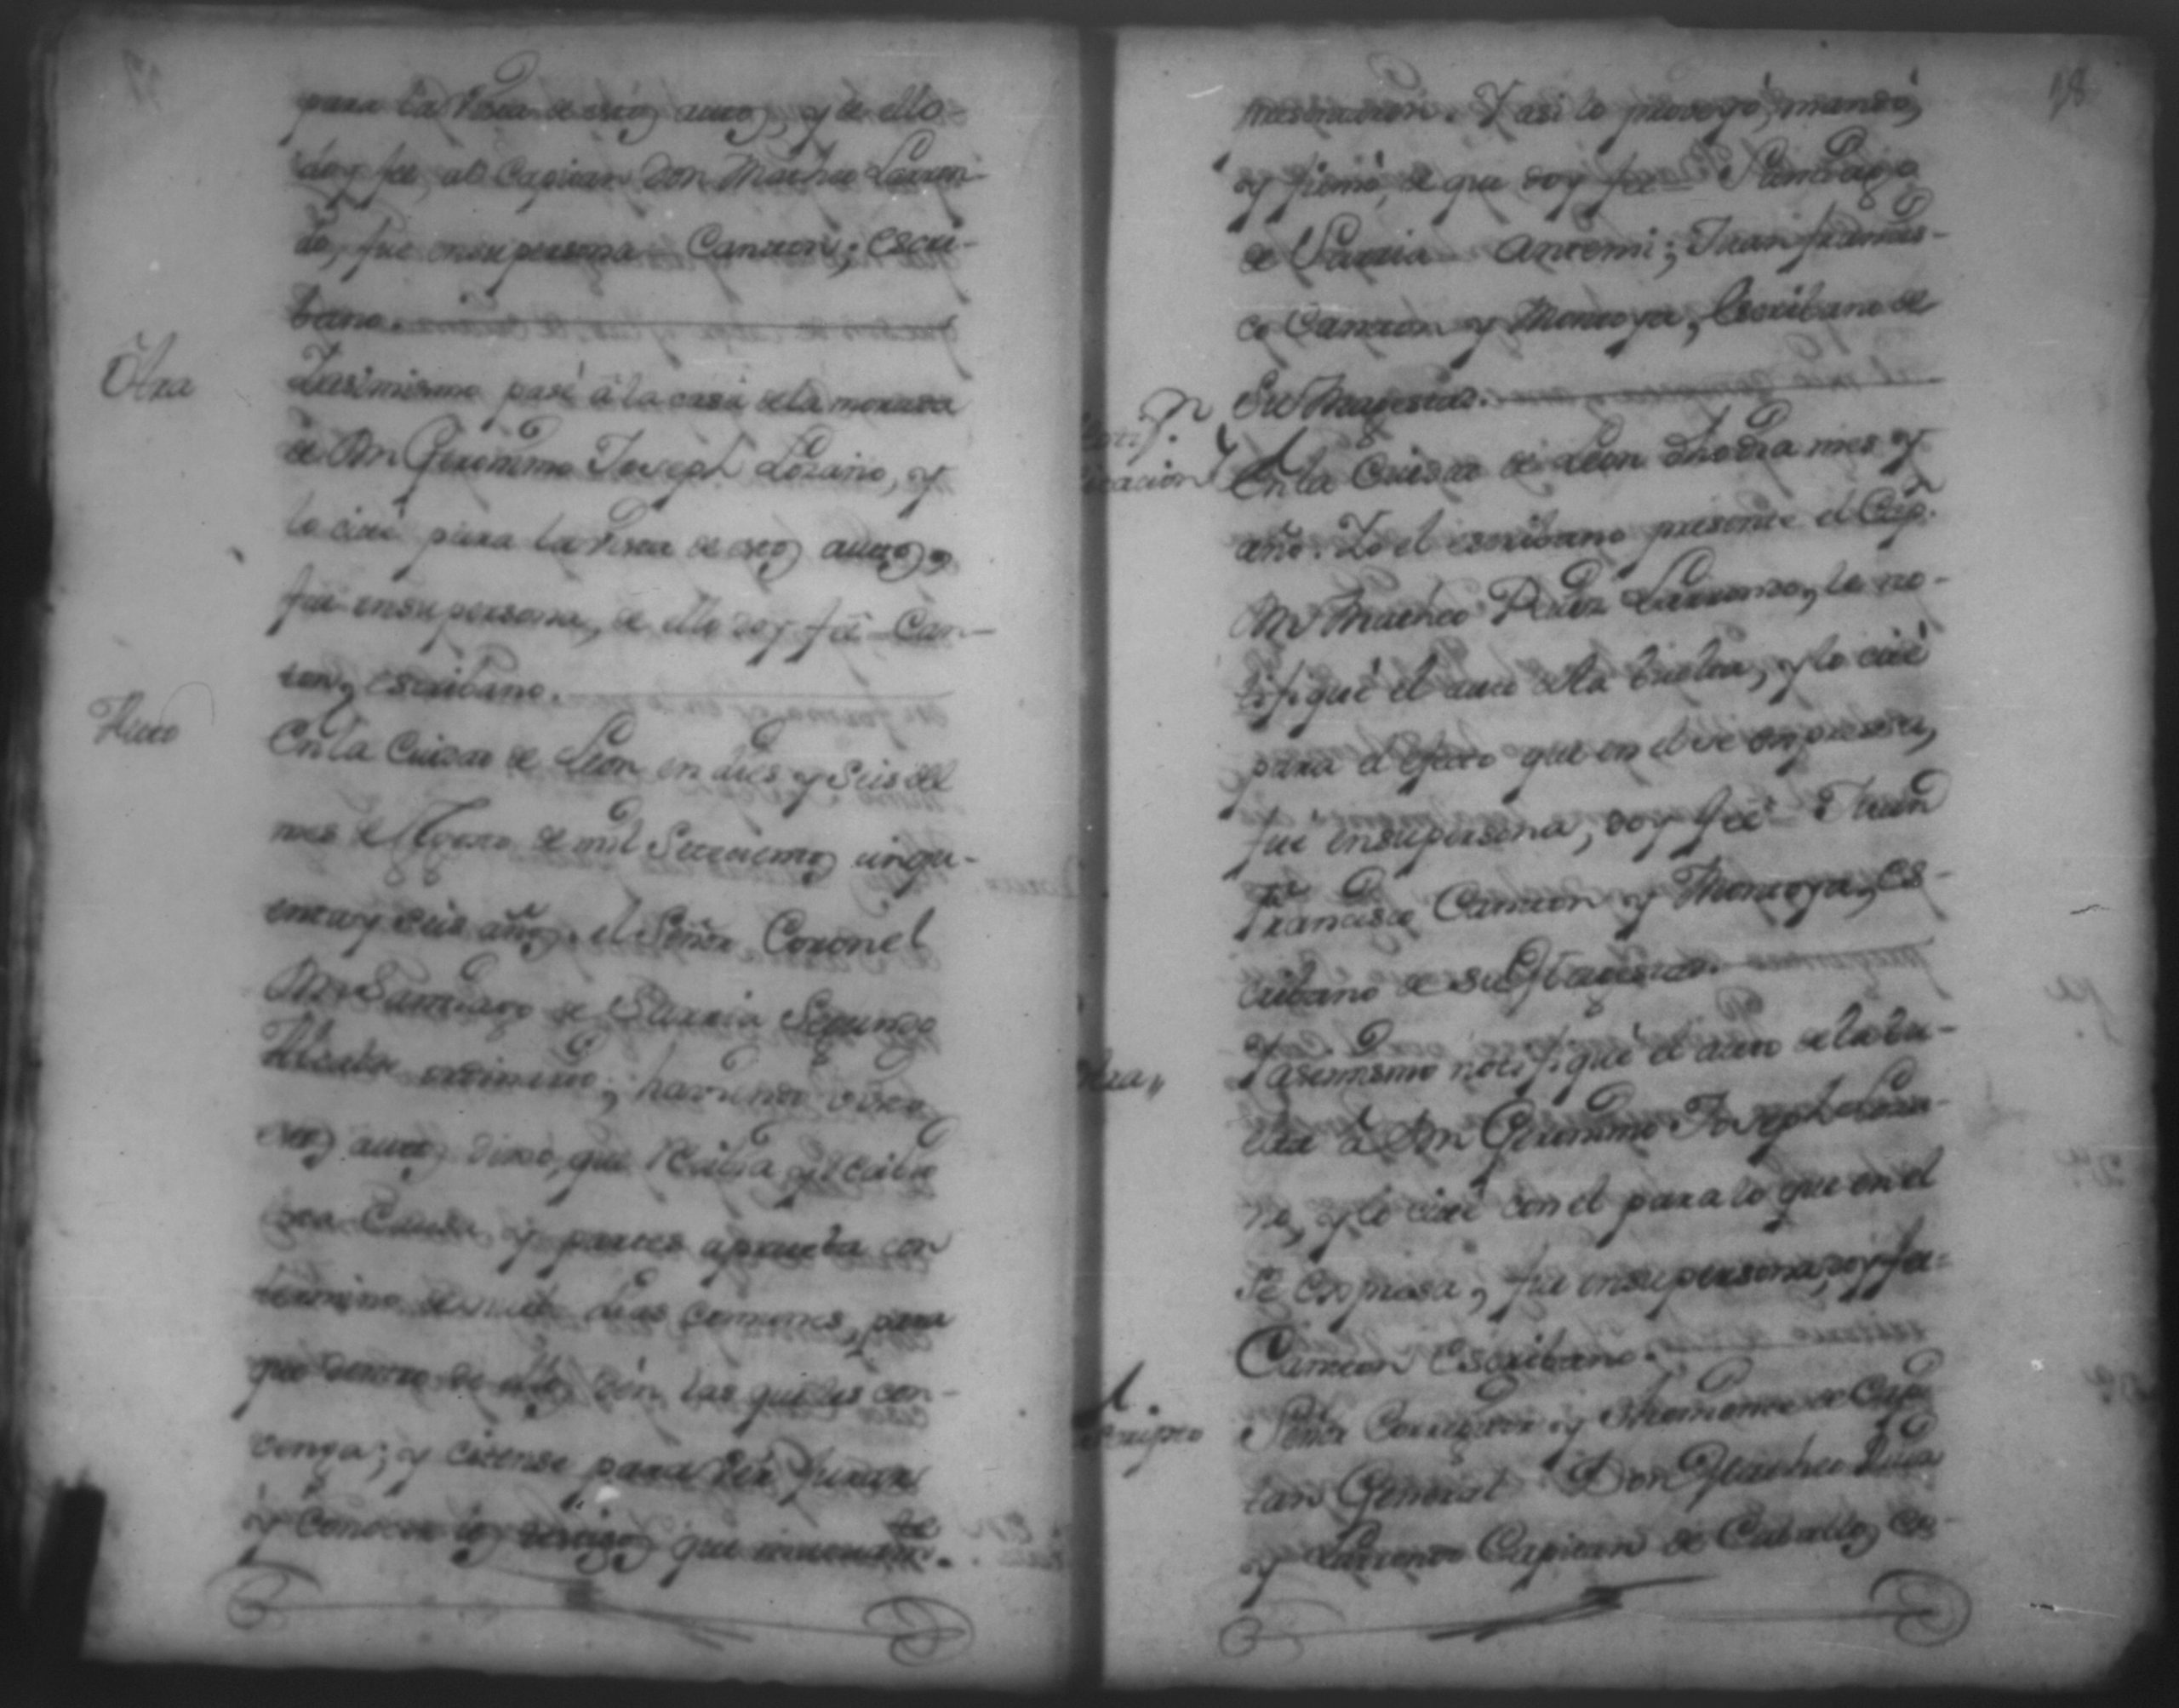 para la vista de estos autos, y de ello
doy fee, al Capitan Don Matheo Larron-
do, fue en su persona Canton; Escri-
bano.
Otra
Y asimismo pasé à la casa de la morada
de Dn Geronimo Joseph Lozano, y
lo cité para la vista de estos autos,
fue en su persona, de ello doy feé Can-
ton, escribano.
Auto
En la Ciudad de Leon en dies y Seis del
mes de de mil Setecientos cinqu-
enta y seis años. el Señor Coronel
Dn Santiago de Sarria Segundo
Alcalde ordinario; haviendo visto
estos autos dixo, que recibia, y recibio
esta Causa y partes aprueba con
termino de nuebe dias comunes, para
que dentro de ellos dén las que les con-
venga; y citense para vér jurar
y conocer los testigos que
18
presentaren. Y asi lo proveyó, mandó,
y firmó, de que doy fee Santiago
de Sarria Antemi; Juan francis-
co Canton y Montoya, Escribano de
Su Magestad.
Notif.
icacion
En la Ciudad de Leon dho dia mes y
año. Yo el escribano presente el Cap.
Dn Matheo Larrondo, le no-
tifiqué el auto de la buelta, y lo cité
para el efecto que en el se expresa,
fue en su persona, doy feé Juan
Francisco Canton y Montoya, Es-
cribano de su Magestad.
Otra,,
Y asimismo notifiqué el auto de la bu-
elta à Dn Geronimo Joseph Loza-
no, y lo cité con el para lo que en el
se expresa, fue en su persona, doy fee
Canton Escribano.
Escripto
Señor Corregidor y Theniente de Capi
tan General Don Matheo
y Larrondo Capitan de Caballos Co-